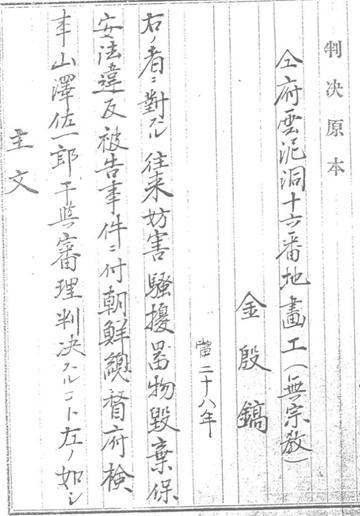 判決原本
仝府雲泥洞十六番地畫工(無宗敎)
金殷鎬
當二十八年
右ノ者ニ對スル往来妨害騒擾器物毀棄保
安法違反被告事件ニ付朝鮮總督府検
事山澤佐一郎干與審理判決スルコト左ノ如シ
主文